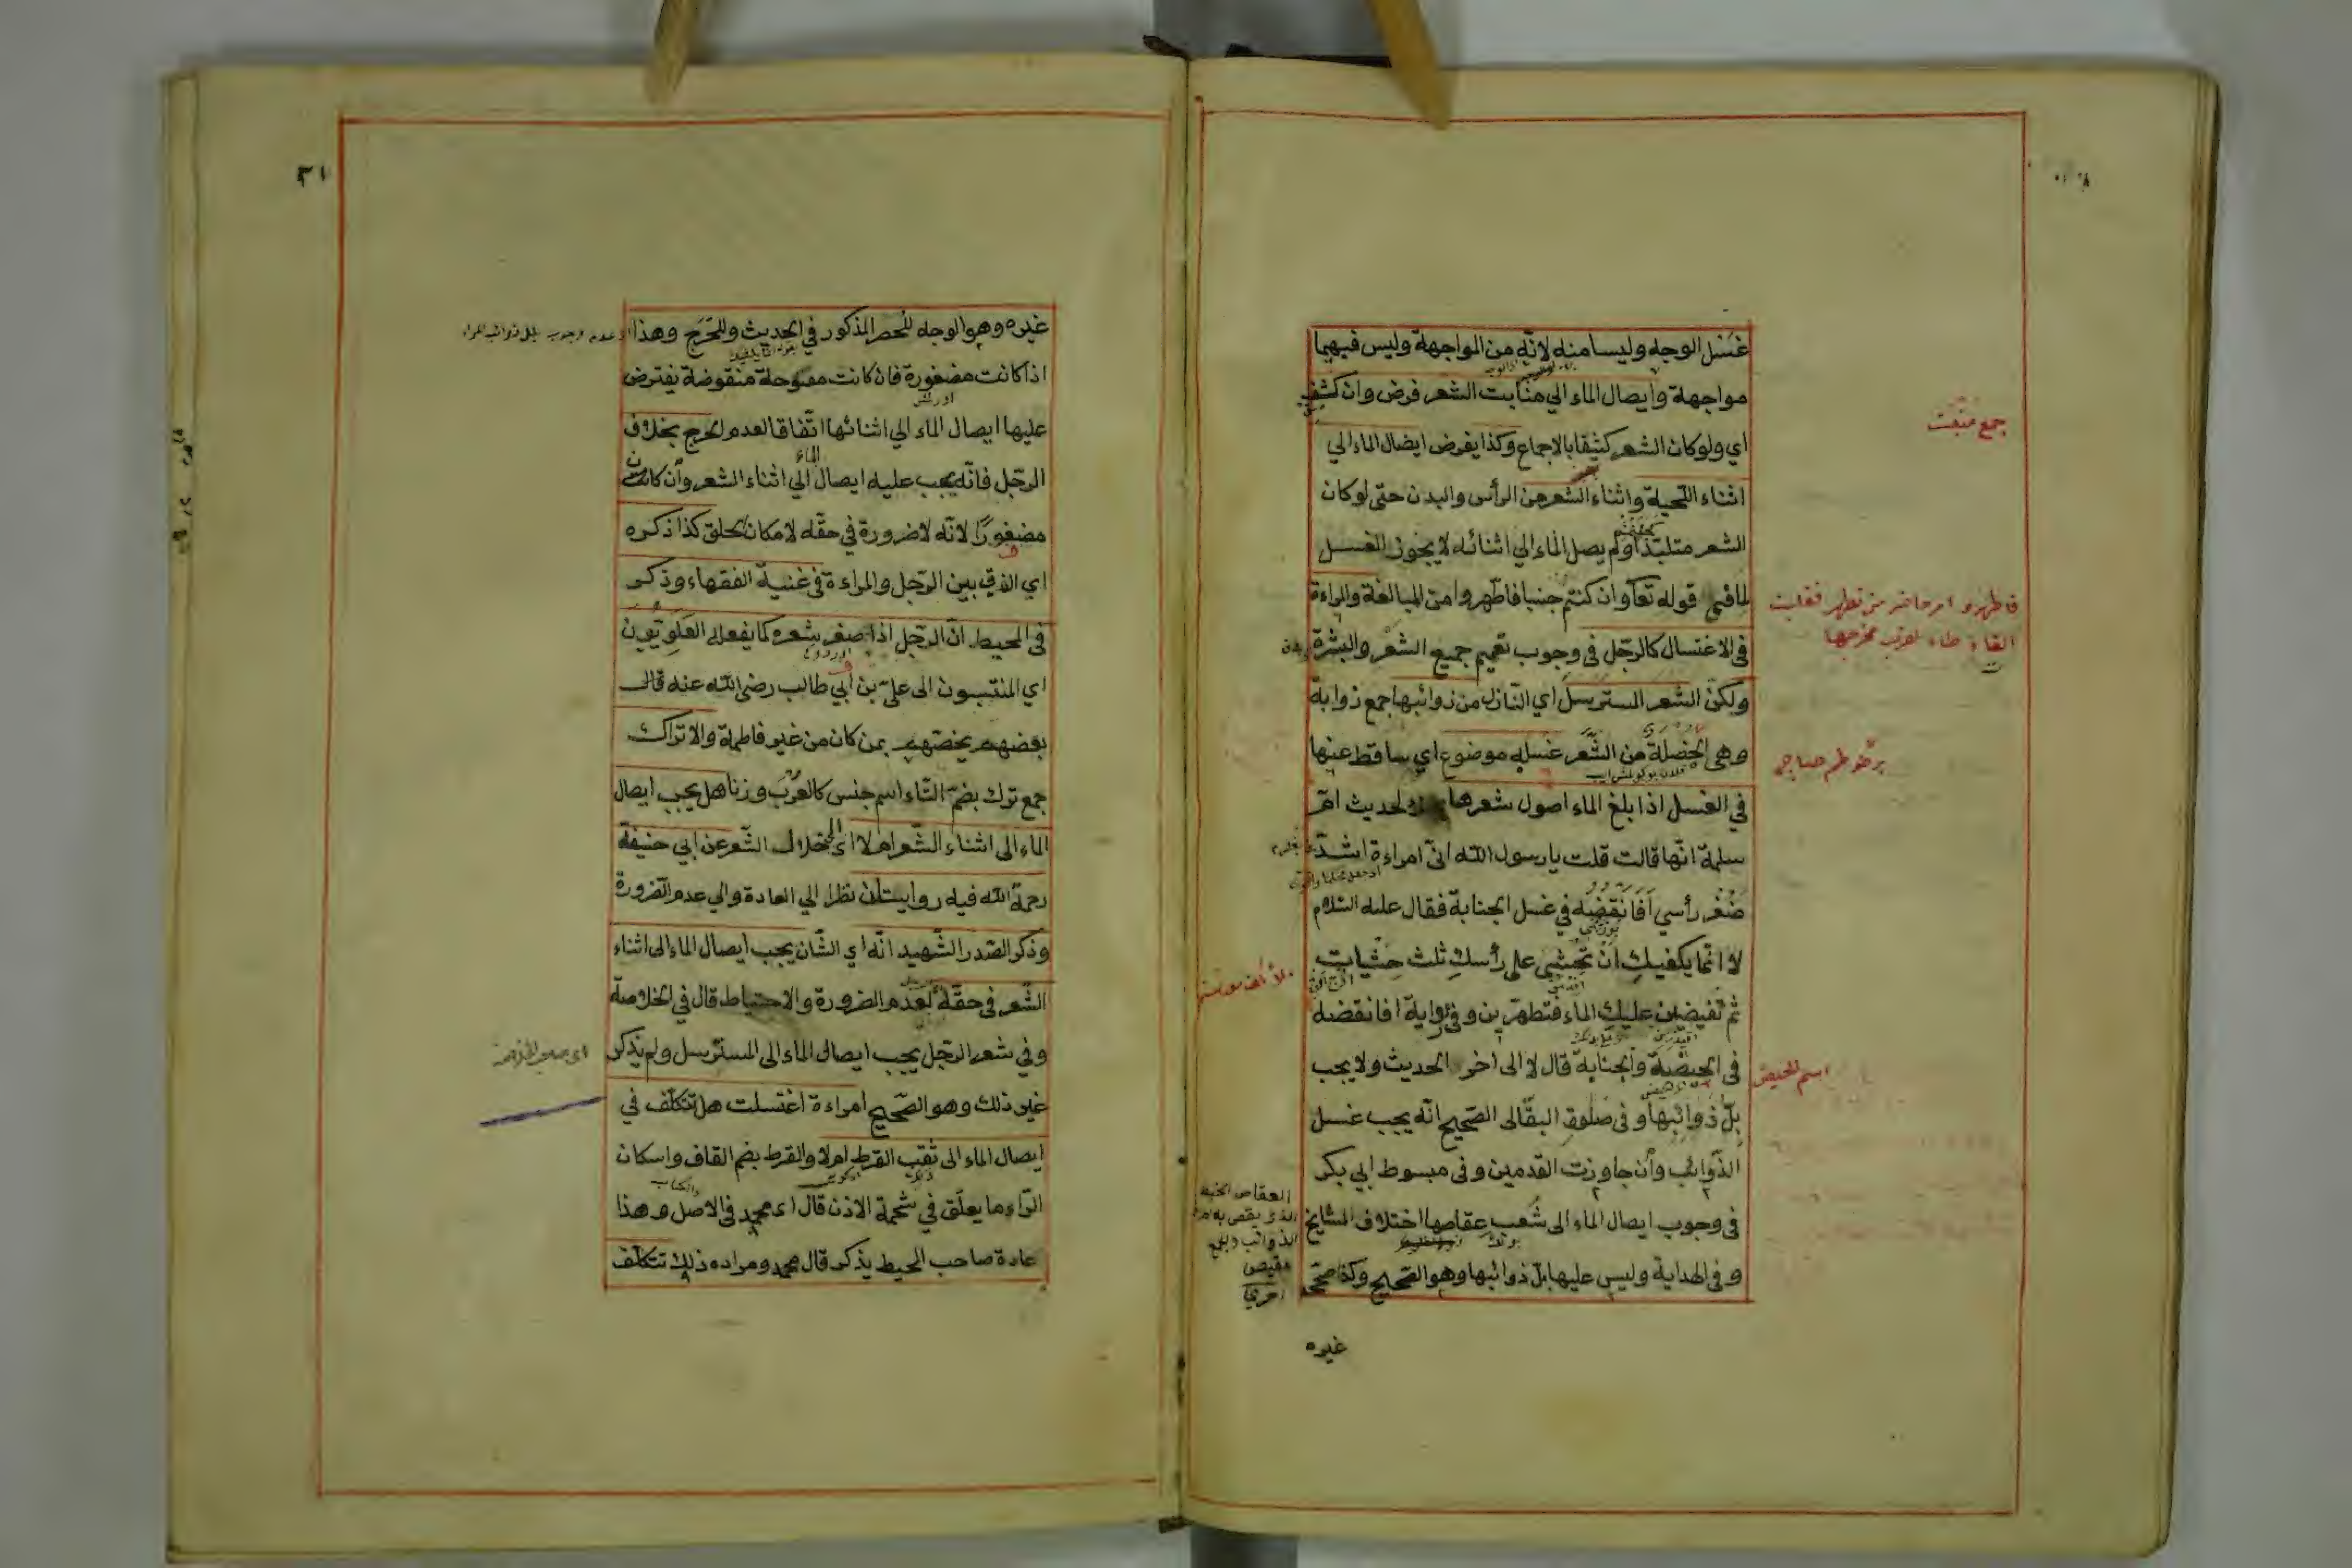 غسل الوجه وليسا منه لانه من المواجهة وليس فيهما
مواجهة وايصال الماء الي منابت الشعر فرض وان كثف
اي ولو كان الشعر كثيفا بالاجماع وكذا يفرض ايصال الماء الي
اثناء اللحية واثناء الشعر من الرأس والبدن حتى لو كان
الشعر متلبدا ولم يصل الماء الي اثنائه لا يجوز الغسل
لما في قوله تعا وان كنتم جنبا فاطهروا من المبالغة والمراءة
في الاغتسال كالرجل في وجوب تعميم جميع الشعر والبشرة
ولكن الشعر المسترسل اي النازل من ذوائبها جمع ذوابة
وهي الخصلة من الشعر غسله موضوع اي ساقط عنها
في الغسل اذا بلغ الماء اصول شعرها لحديث ام
سلمة انها قالت قلت يا رسول الله اني امراءة اشد
ضفر رأسي افانقضه في غسل الجنابة فقال عليه السلام
لا انما يكفيك ان تحثي على رأسك ثلث حثيات
ثم تفيضين عليك الماء فتطهرين وفي رواية افانقضه
في الحيضة والجنابة قال لا الى اخر الحديث ولا يجب
بل ذوائبها وفي صلوة البقالى الصحيح انه يجب غسل
الذوائب وان جاوزت القدمين وفي مبسوط ابي بكر
في وجوب ايصال الماء الى شعب عقاصها اختلاف المشايخ
وفي الهداية وليس عليها بل ذوائبها وهو الصحيح وكذا صححه
غيره
جمع منبت
فاطهروا امر حاضر من تطهر فقلبت
التاء طاء لقرب مخرجها
اسم الحيض
العقاص الخيط
الذي يقص به
الذوائب
٣١
غيره وهو الوجه للحصر المذكور في الحديث وللحرج وهذا
اذا كانت مضفورة فان كانت مفتوحة منقوضة يفترض
عليها ايصال الماء الي اثنائها اتفاقا لعدم الحرج بخلاف
الرجل فانه يجب عليه ايصال الماء الي اثناء الشعر وان كان
مضفورا لانه لا ضرورة في حقه لامكان الحلق كذا ذكره
اي الفرق بين الرجل والمراءة في غنية الفقهاء وذكر
في المحيط ان الرجل اذا ضفر شعره كما يفعله العلويون
اي المنتسبون الى علي بن ابي طالب رضي الله عنه قال
بعضهم يخصهم بمن كان من غير فاطمة والاتراك
جمع ترك بضم التاء اسم جنس كالعرب وزنا هل يجب ايصال
الماء الى اثناء الشعر ام لا اي الى خلال الشعر عن ابي حنيفة
رحمة الله فيه روايتان نظرا الي العادة والي عدم الضرورة
وذكر الصدر الشهيد انه اي الشان يجب ايصال الماء الى اثناء
الشعر في حقه لعدم الضرورة والاحتياط قال في الخلاصة
وفي شعر الرجل يجب ايصال الماء الى المسترسل ولم يذكر
غير ذلك وهو الصحيح امراءة اغتسلت هل تتكلف في
ايصال الماء الى ثقب القرط ام لا والقرط بضم القاف واسكان
الراء ما يعلق في شحمة الاذن قال اي محمد في الاصل وهذا
عادة صاحب المحيط يذكر قال محمد ومراده ذلك تتكلف